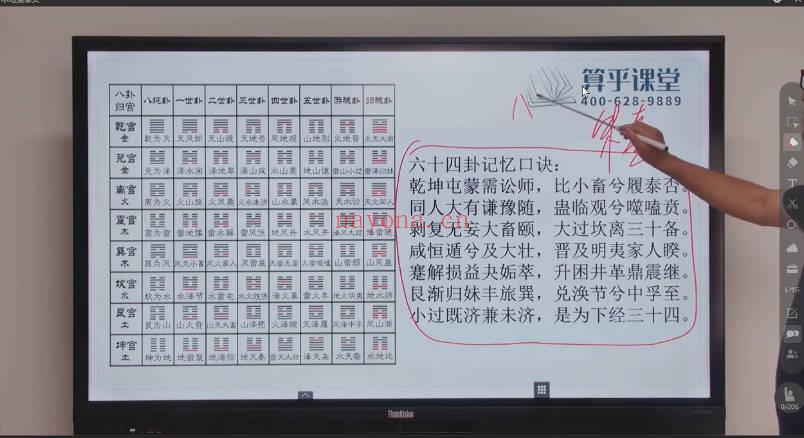 算乎课堂
400-628-9889
八卦归宫 八纯卦 一世卦 二世卦 三世卦 四世卦 五世卦 游魂卦 归魂卦
乾宫 金 乾为天 天风姤 天山遁 天地否 风地观 山地剥 火地晋 火天大有
兑宫 金 兑为泽 泽水困 泽地萃 泽山咸 水山蹇 地山谦 雷山小过 雷泽归妹
离宫 火 离为火 火山旅 火风鼎 火水未济 山水蒙 风水涣 天水讼 天火同人
震宫 木 震为雷 雷地豫 雷水解 雷风恒 地风升 水风井 泽风大过 泽雷随
巽宫 木 巽为风 风天小畜 风火家人 风雷益 天雷无妄 火雷噬嗑 山雷颐 山风蛊
坎宫 水 坎为水 水泽节 水雷屯 水火既济 泽火革 雷火丰 地火明夷 地水师
艮宫 土 艮为山 山火贲 山天大畜 山泽损 火泽睽 天泽履 风泽中孚 风山渐
坤宫 土 坤为地 地雷复 地泽临 地天泰 雷天大壮 泽天夬 水天需 水地比
六十四卦记忆口诀：
乾坤屯蒙需讼师，比小畜兮履泰否。
同人大有谦豫随，蛊临观兮噬嗑贲。
剥复无妄大畜颐，大过坎离三十备。
咸恒遁兮及大壮，晋及明夷家人睽。
蹇解损益夬姤萃，升困井革鼎震继。
艮渐归妹丰旅巽，兑涣节兮中孚至。
小过既济兼未济，是为下经三十四。
navona.cn
ThinkVision
0/206